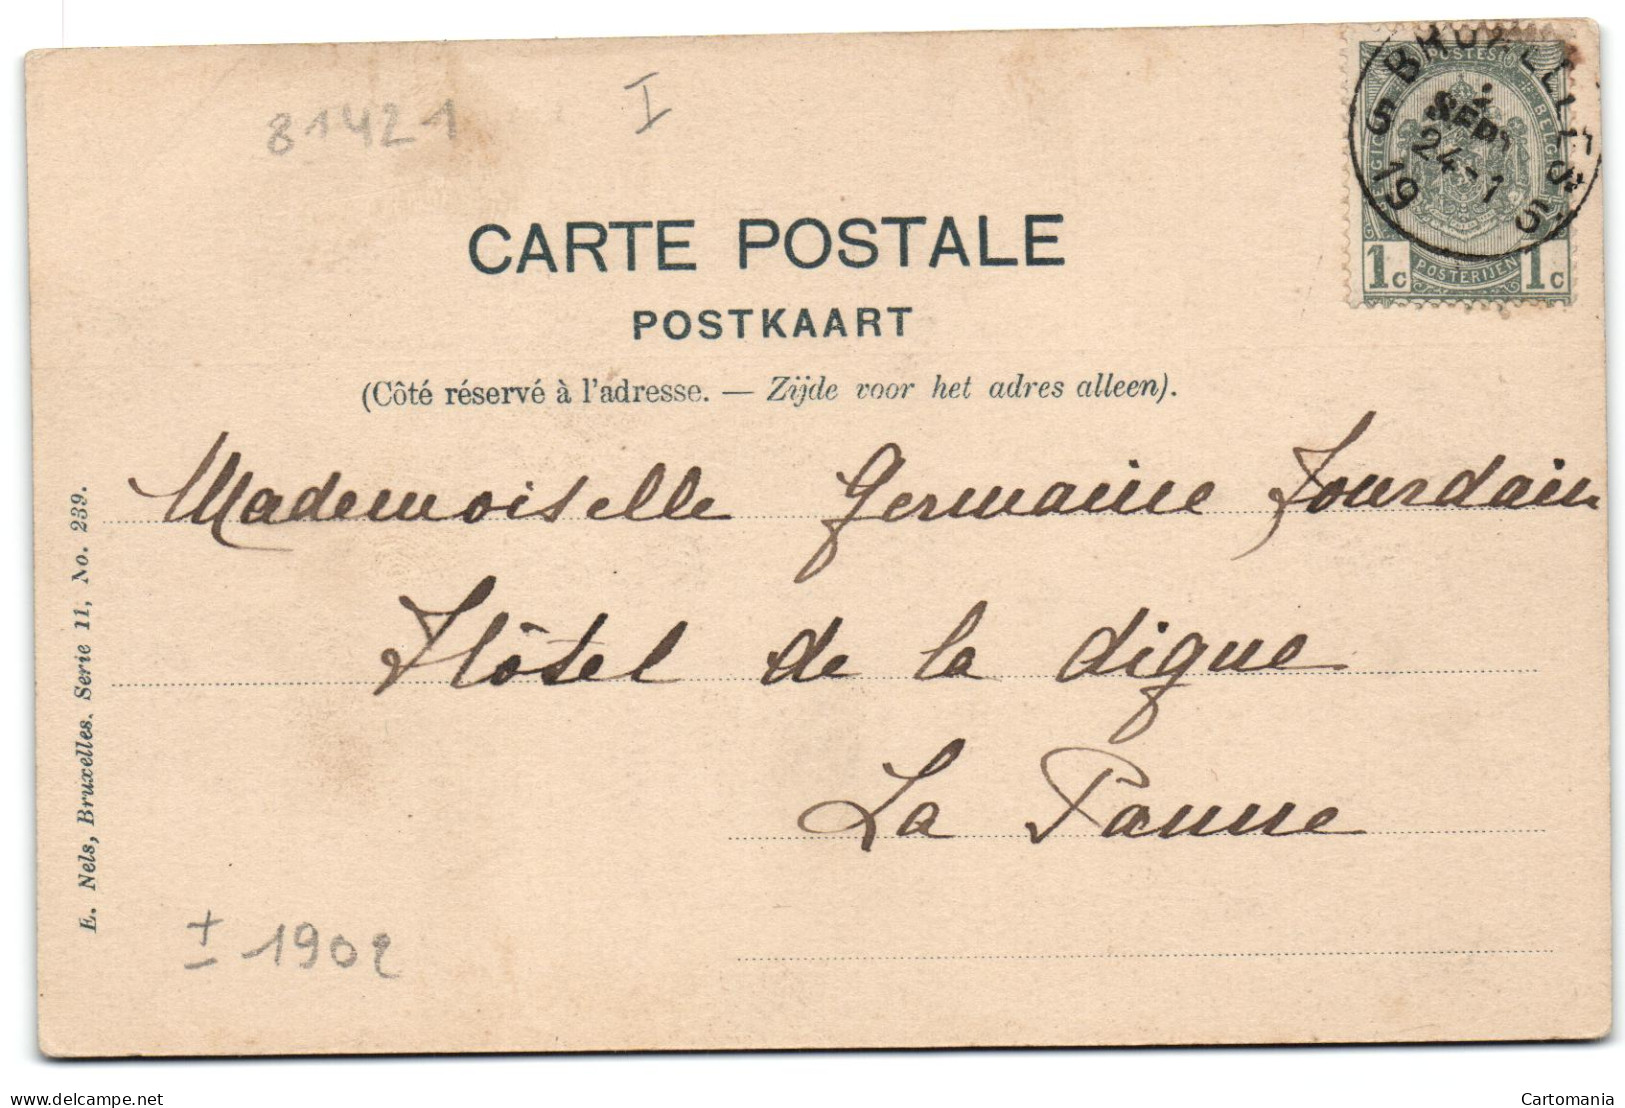 81421
I
BRUXELLES 5
SEPT
24-1
19
POSTES
BELGIQUE
POSTERIJEN
1c 1c
CARTE POSTALE
POSTKAART
(Côté réservé à l'adresse. — Zijde voor het adres alleen).
Mademoiselle Germaine Jourdain
Hôtel de la digue
La Panne
E. Nels, Bruxelles. Serie 11, No. 239.
± 1902
delcampe.net
Cartomania